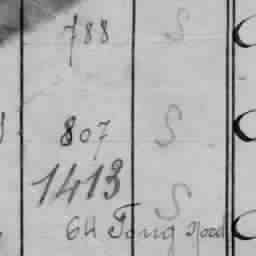 788 S
807 S
1413 S
64 Tong Nord